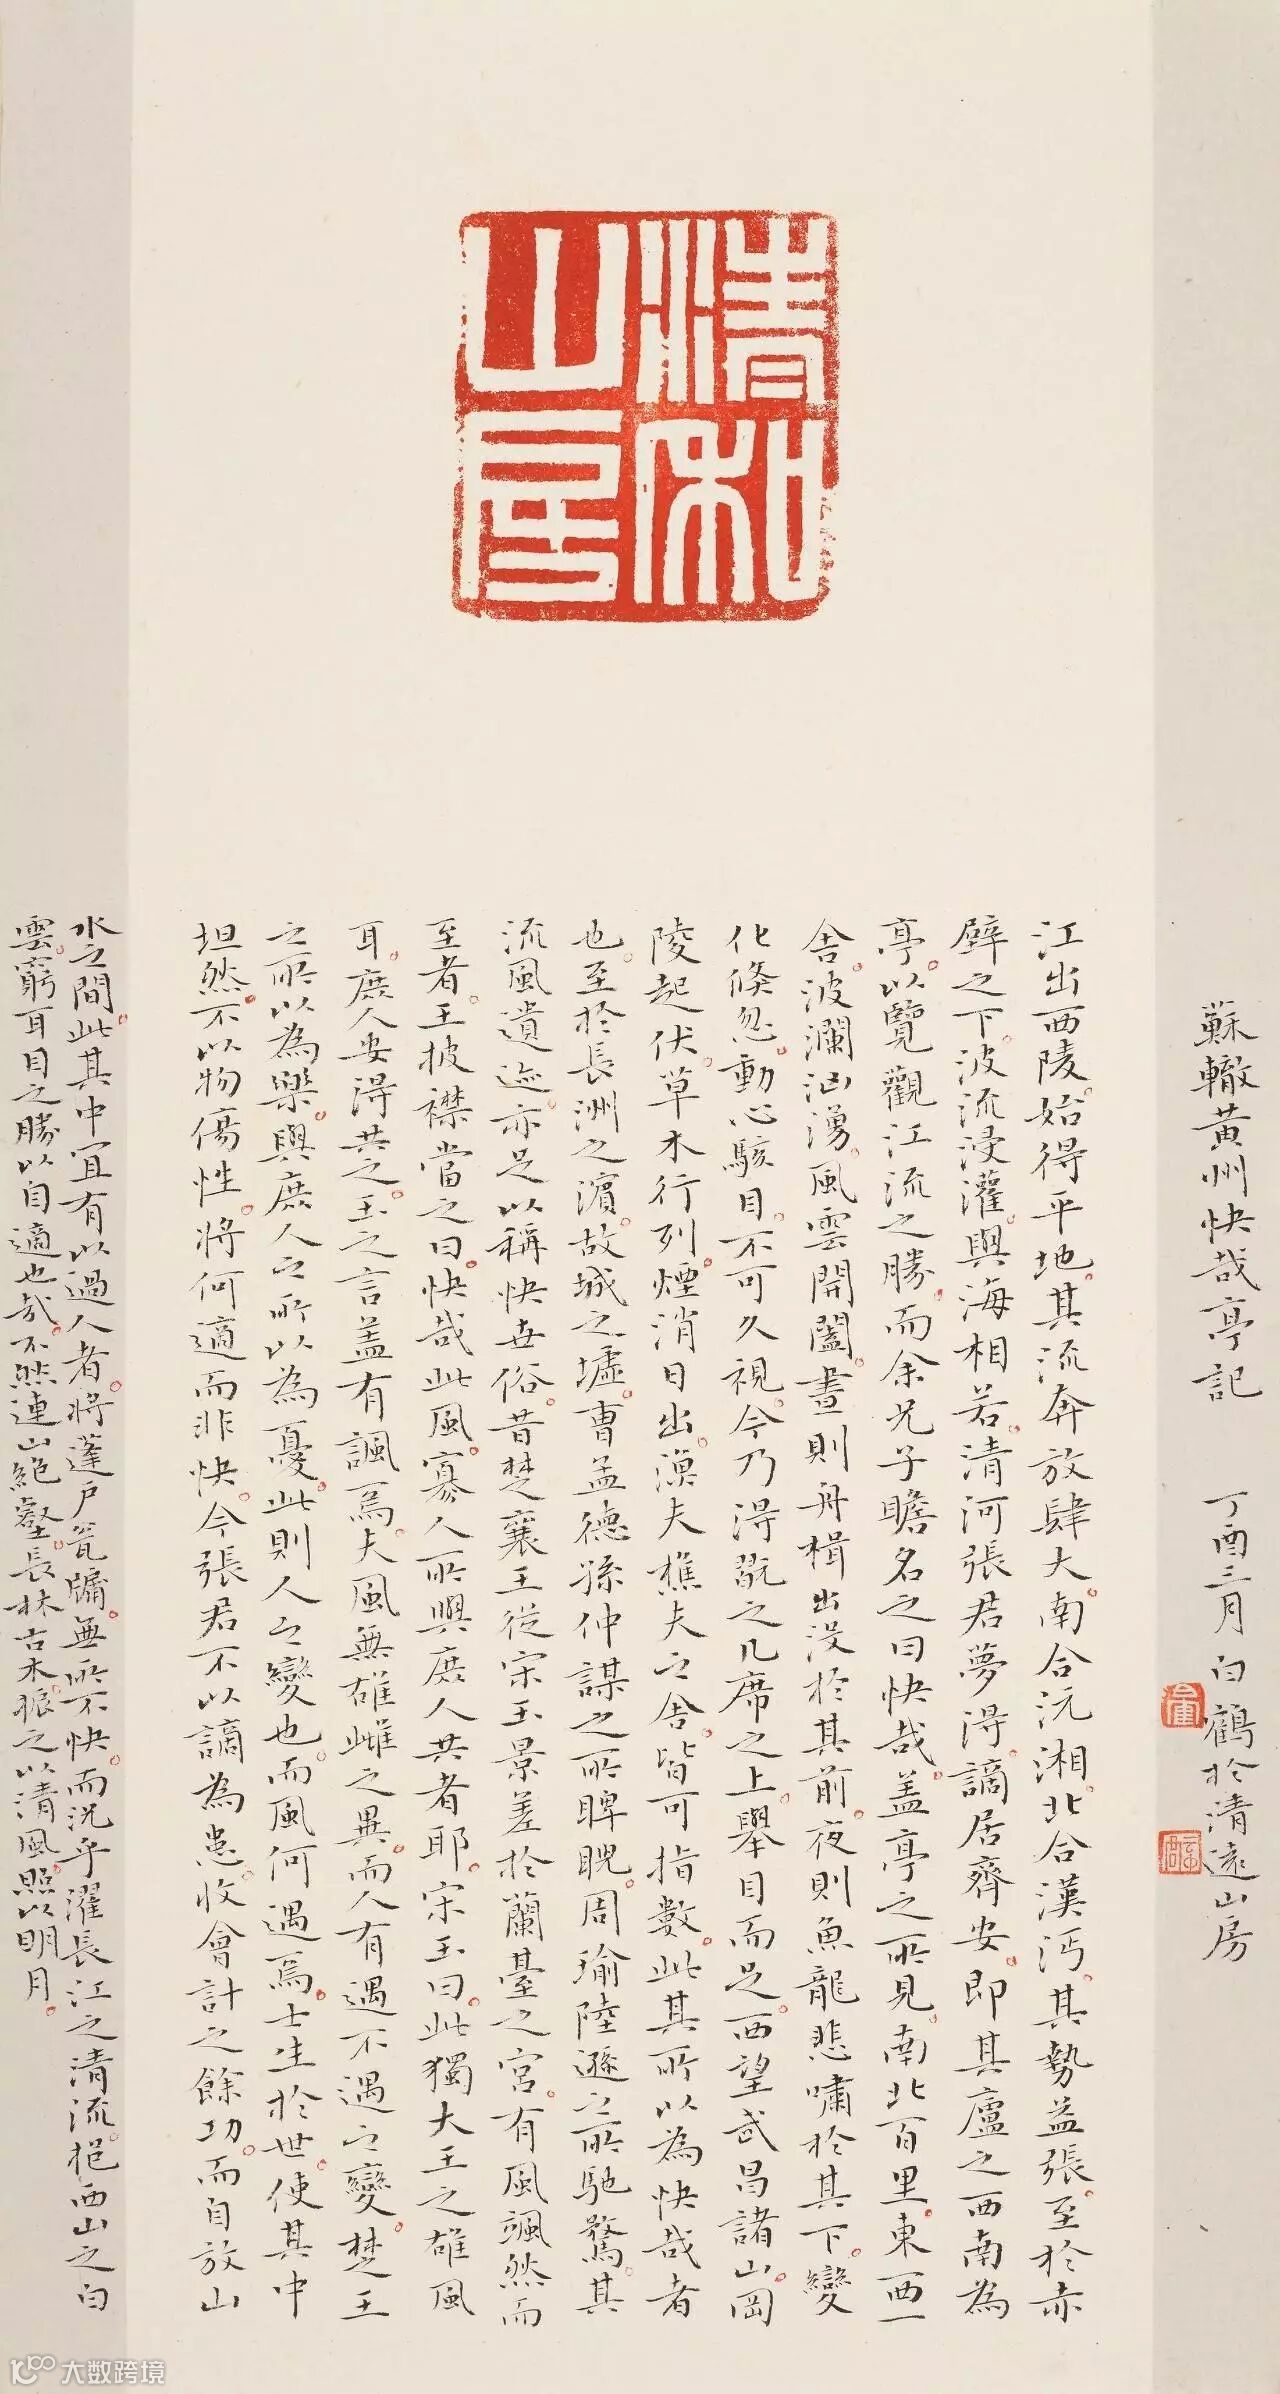 清
山房
蘇轍黃州快哉亭記 丁酉三月白鶴於清遠山房
江出西陵。始得平地。其流奔放肆大。南合沅湘。北合漢沔。其勢益張。至於赤
壁之下。波流浸灌。與海相若。清河張君夢得。謫居齊安。即其廬之西南為
亭。以覽觀江流之勝。而余兄子瞻名之曰快哉。盖亭之所見。南北百里。東西一
舍。波瀾洶湧。風雲開闔。晝則舟楫出没於其前。夜則魚龍悲嘯於其下。變
化倏忽。動心駭目。不可久視。今乃得翫之几席之上。舉目而足。西望武昌諸山。岡
陵起伏。草木行列。煙消日出。漁夫樵夫之舍。皆可指數。此其所以為快哉者
也。至於長洲之濱。故城之墟。曹孟德孫仲謀之所睥睨。周瑜陸遜之所馳騖。其
流風遺迹。亦足以稱快世俗。昔楚襄王從宋玉景差於蘭臺之宮。有風颯然而
至者。王披襟當之曰。快哉此風。寡人所與庶人共者耶。宋玉曰。此獨大王之雄風
耳。庶人安得共之。玉之言盖有諷焉。夫風無雄雌之異。而人有遇不遇之變。楚王
之所以為樂。與庶人之所以為憂。此則人之變也。而風何遇焉。士生於世。使其中
坦然。不以物傷性。將何適而非快。今張君不以謫為患。收會計之餘功。而自放山
水之間。此其中宜有以過人者。將蓬戶瓮牖。無所不快。而況乎濯長江之清流。挹西山之白
雲。窮耳目之勝以自適也哉。不然。連山絶壑。長林古木。振之以清風。照以明月。
大数跨境